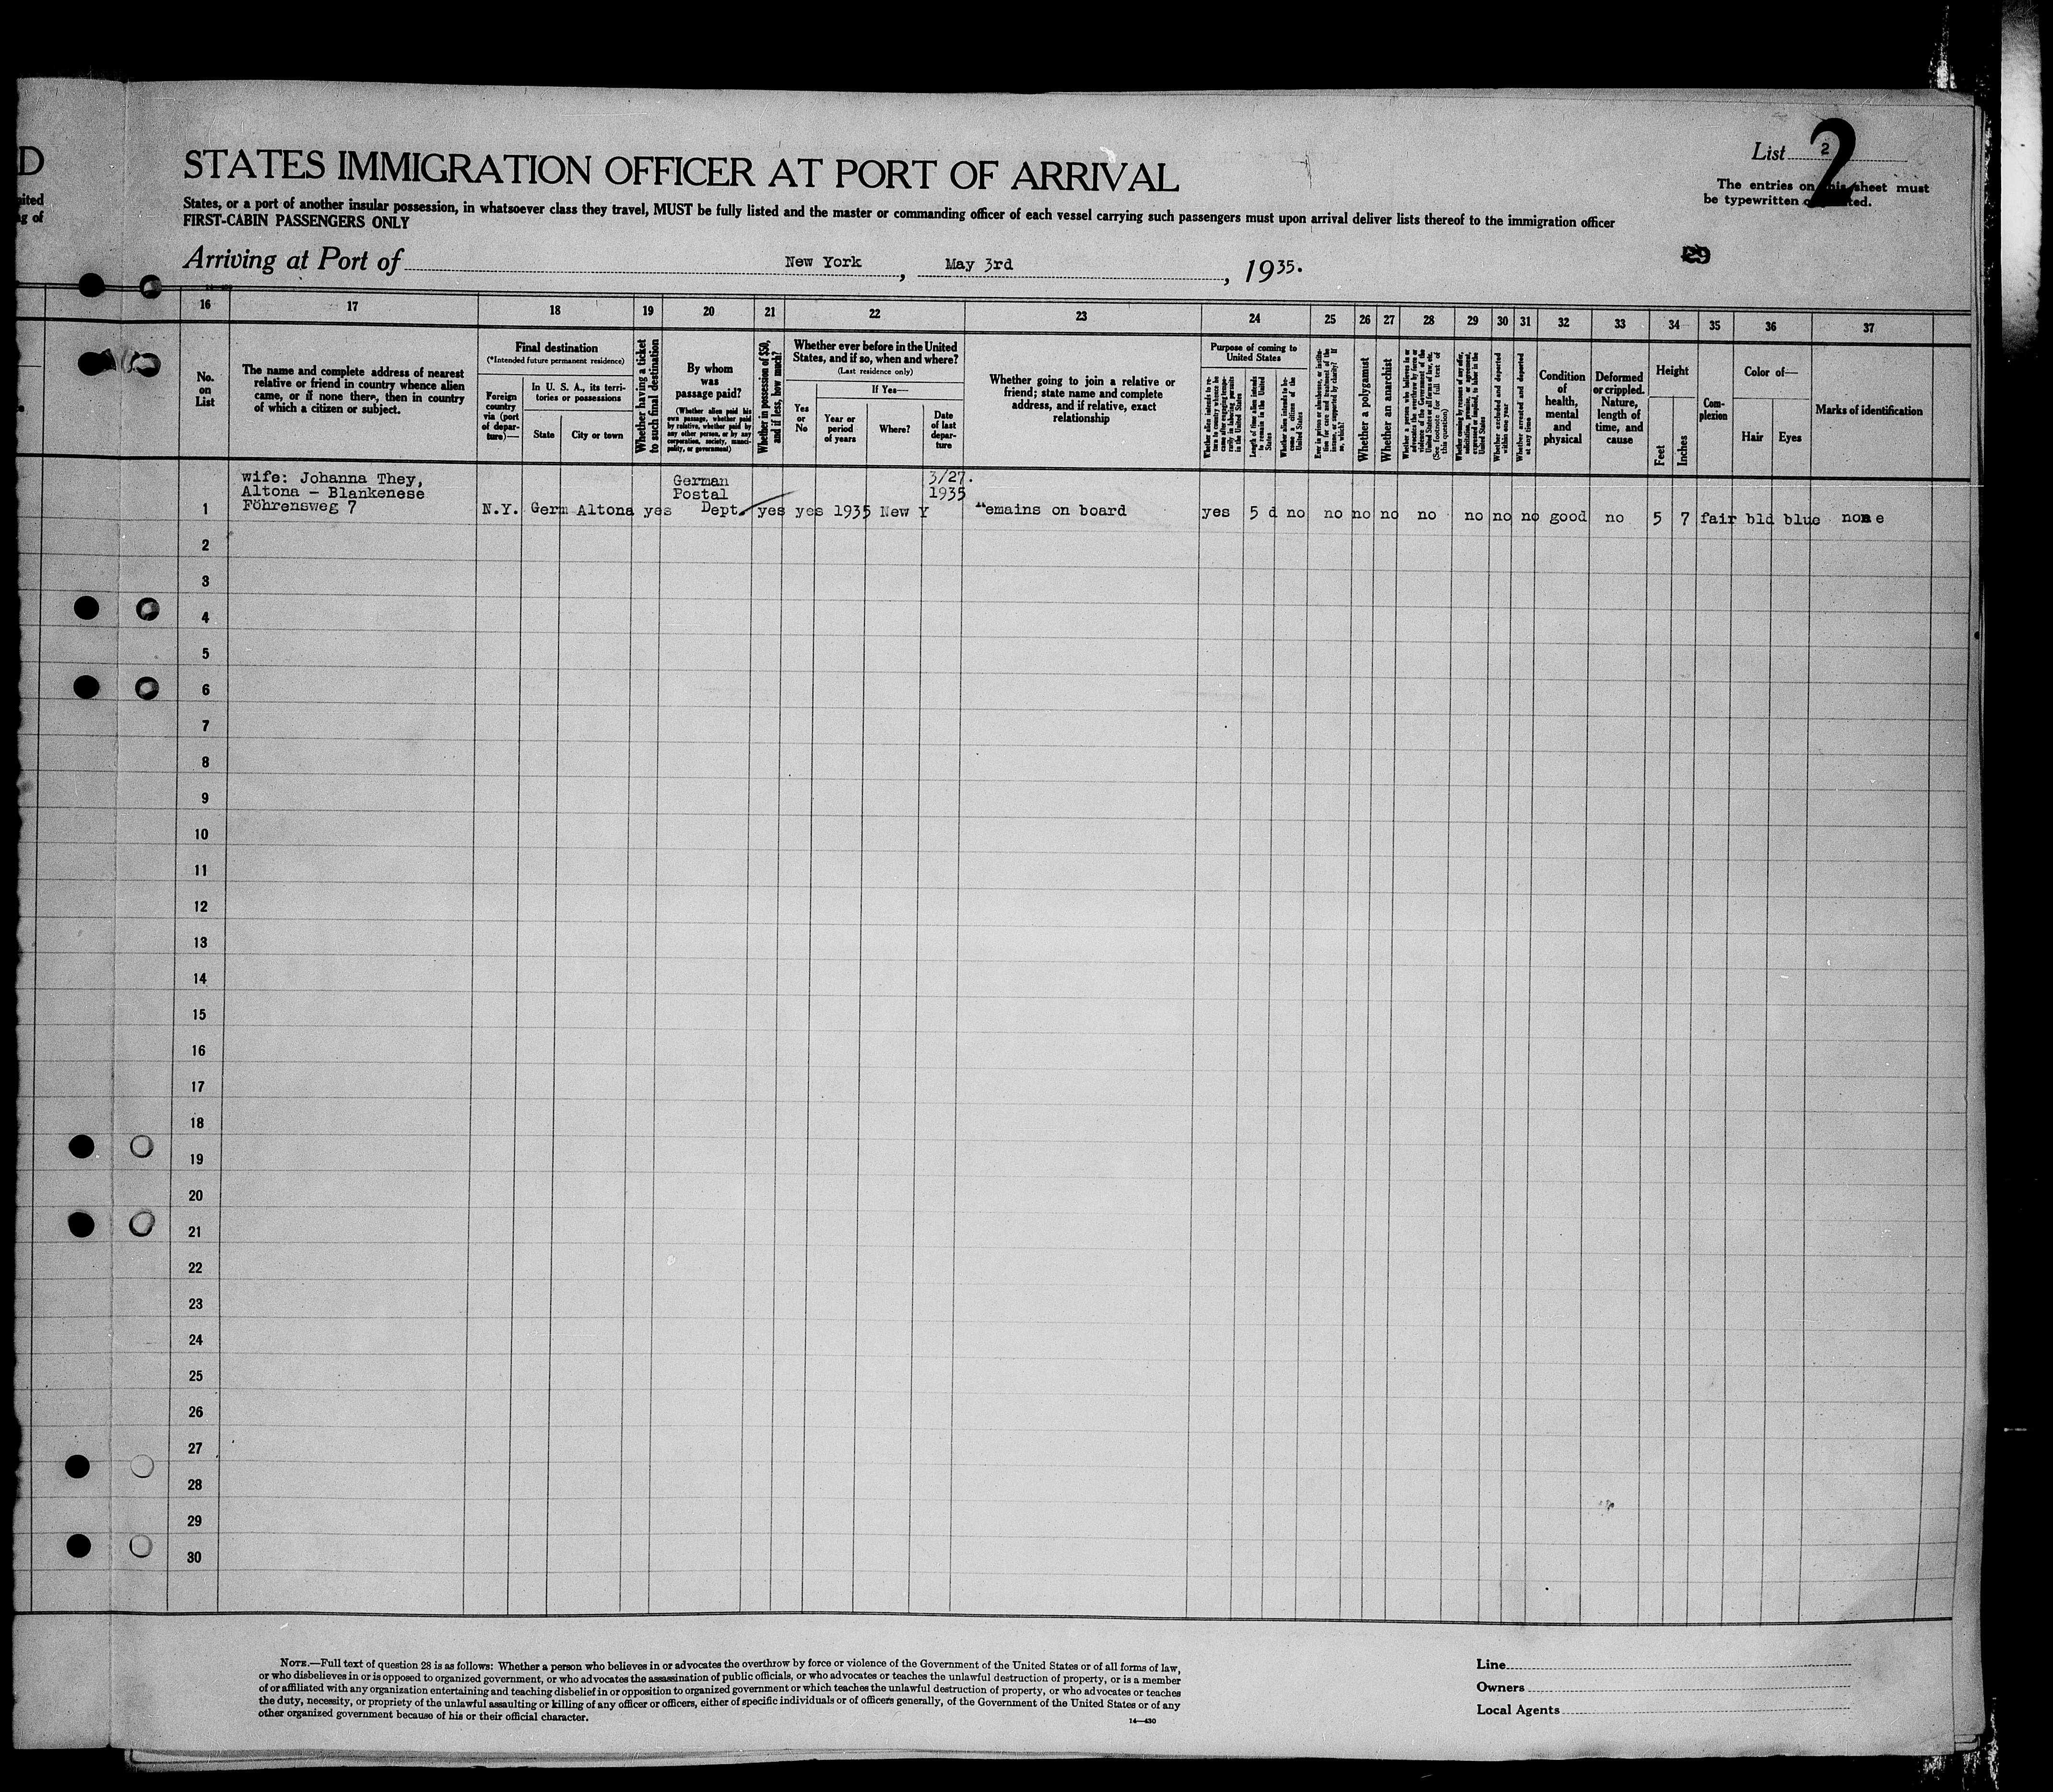 D
STATES IMMIGRATION OFFICER AT PORT OF ARRIVAL
List 2
2
The entries on this sheet must
be typewritten
States, or a port of another insular possession, in whatsoever class they travel, MUST be fully listed and the master or commanding officer of each vessel carrying such passengers must upon arrival deliver lists thereof to the immigration officer
FIRST-CABIN PASSENGERS ONLY
Arriving at Port of New York, May 3rd, 1935.
16 17 18 19 20 21 22 23 24 25 26 27 28 29 30 31 32 33 34 35 36 37
No.
on
List
The name and complete address of nearest
relative or friend in country whence alien
came, or if none there, then in country
of which a citizen or subject.
Final destination
(*Intended future permanent residence)
Foreign
country
via (port
of depar-
ture)—
In U. S. A., its terri-
tories or possessions
State
City or town
Whether having a ticket
to such final destination
By whom
was
passage paid?
(Whether alien paid his
own passage, whether paid
by relative, whether paid by
any other person, or by any
corporation, society, munici-
pality, or government)
Whether in possession of $50,
and if less, how much?
Whether ever before in the United
States, and if so, when and where?
(Last residence only)
Yes
or
No
If Yes—
Year or
period
of years
Where?
Date
of last
depar-
ture
Whether going to join a relative or
friend; state name and complete
address, and if relative, exact
relationship
Purpose of coming to
United States
Length of time alien intends
to remain in the United
States
Whether alien intends to be-
come a citizen of the
United States
Whether a polygamist
Whether an anarchist
(See footnote for full text of
this question)
Whether excluded and deported
within one year
Whether arrested and deported
at any time
Condition
of
health,
mental
and
physical
Deformed
or crippled.
Nature,
length of
time, and
cause
Height
Feet
Inches
Com-
plexion
Color of—
Hair
Eyes
Marks of identification
wife: Johanna They,
Altona - Blankenese
Föhrensweg 7
German
Postal
3/27.
1935
1 N.Y. Germ Altona yes Dept. yes yes 1935 New Y emains on board yes 5 d no no no no no no no no good no 5 7 fair bld blue none
2
3
4
5
6
7
8
9
10
11
12
13
14
15
16
17
18
19
20
21
22
23
24
25
26
27
28
29
30
NOTE.—Full text of question 28 is as follows: Whether a person who believes in or advocates the overthrow by force or violence of the Government of the United States or of all forms of law,
or who disbelieves in or is opposed to organized government, or who advocates the assassination of public officials, or who advocates or teaches the unlawful destruction of property, or is a member
of or affiliated with any organization entertaining and teaching disbelief in or opposition to organized government or which teaches the unlawful destruction of property, or who advocates or teaches
the duty, necessity, or propriety of the unlawful assaulting or killing of any officer or officers, either of specific individuals or of officers generally, of the Government of the United States or of any
other organized government because of his or their official character.
14—430
Line
Owners
Local Agents